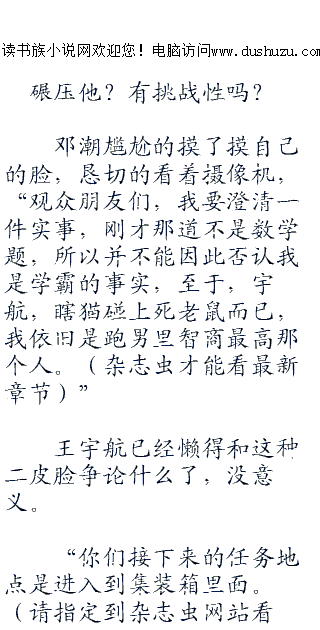 读书族小说网欢迎您！电脑访问www.dushuzu.com
碾压他？有挑战性吗？
邓潮尴尬的摸了摸自己
的脸，恳切的看着摄像机，
“观众朋友们，我要澄清一
件实事，刚才那道不是数学
题，所以并不能因此否认我
是学霸的事实，至于，宇
航，瞎猫碰上死老鼠而已，
我依旧是跑男里智商最高那
个人。（杂志虫才能看最新
章节）”
王宇航已经懒得和这种
二皮脸争论什么了，没意
义。
“你们接下来的任务地
点是进入到集装箱里面。
（请指定到杂志虫网站看